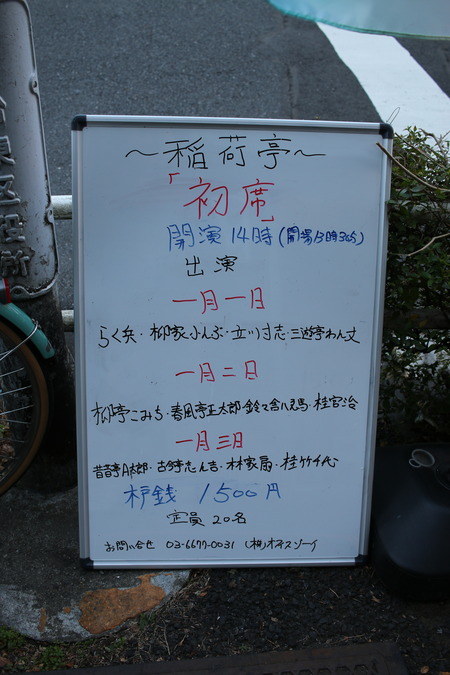 ～稲荷亭～
「初席」
開演 14時(開場13時30分)
出演
一月一日
らく兵・柳家ふんぶ・立川寸志・三遊亭わん丈
一月二日
柳亭こみち・春風亭正太郎・鈴々舎八ゑ馬・桂宮治
一月三日
昔昔亭A太郎・古今亭志ん吉・林家扇・桂竹千代
木戸銭 1500円
定員 20名
お問い合せ 03-6677-0031 (株)オフィスソーイ